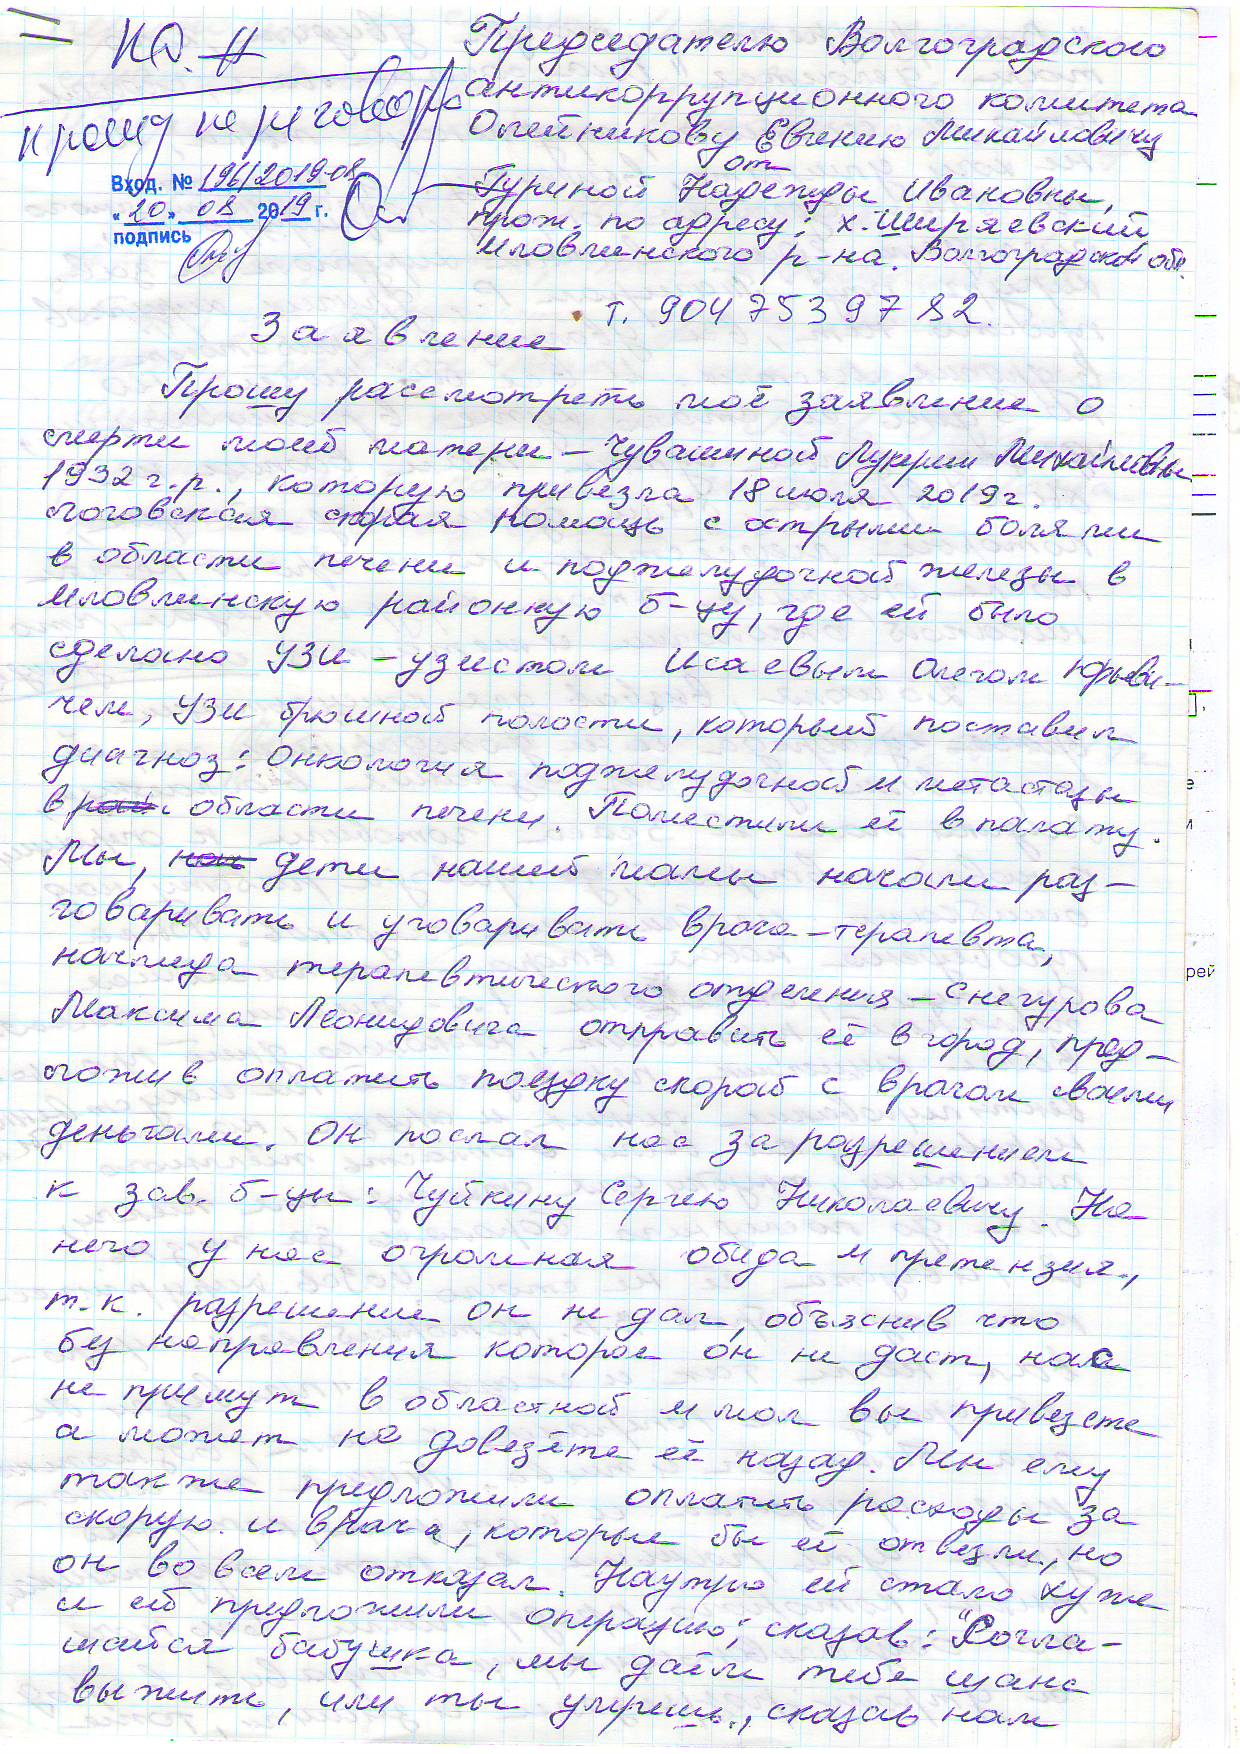 Ю. Н
прошу переговорить
Вход. № 196/2019-08
«20» 08 2019 г.
подпись
Председателю Волгоградского
антикоррупционного комитета
Олейникову Евгению Михайловичу
от
Гуриной Надежды Ивановны,
прож. по адресу: х. Ширяевский
Иловлинского р-на. Волгоградской обл.
т. 904 753 97 82.
Заявление
Прошу рассмотреть моё заявление о
смерти моей матери – Чувашиной Лукерьи Михайловны
1932 г.р., которую привезла 18 июля 2019 г.
логовская скорая помощь с острыми болями
в области печени и поджелудочной железы в
Иловлинскую районную б-цу, где ей было
сделано УЗИ – узистом Исаевым Олегом Юрьеви-
чем, УЗИ брюшной полости, который поставил
диагноз: онкология поджелудочной и метастазы
в области печени. Поместили её в палату.
Мы, дети нашей мамы начали раз-
говаривать и уговаривать врача-терапевта,
начмеда терапевтического отделения – Снегурова
Максима Леонидовича отправить её в город, пред-
ложив оплатить поездку скорой с врачом своими
деньгами. Он послал нас за разрешением
к зав. б-цы: Чуйкину Сергею Николаевичу. На
него у нас огромная обида и претензия.,
т.к. разрешение он не дал, объяснив что
без направления которое он не даст, нас
не приемут в областной и мол вы привезете
а может не довезёте её назад. Мы ему
также предложили оплатить расходы за
скорую и врача, которые бы её отвезли, но
он во всем отказал. Наутро ей стало хуже
и ей предложили операцию, сказав: "Согла-
шайся бабушка, мы даём тебе шанс
выжить, или ты умрешь., сказав нам
рей